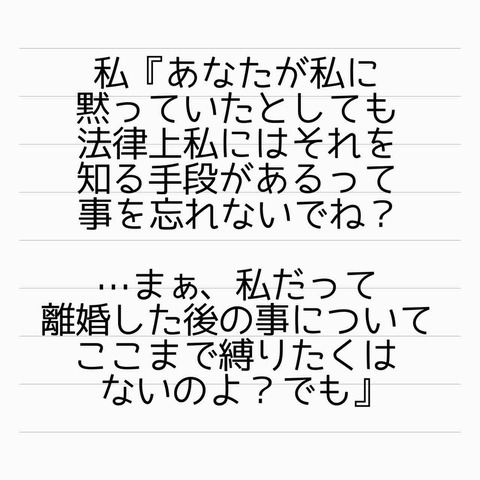 私『あなたが私に
黙っていたとしても
法律上私にはそれを
知る手段があるって
事を忘れないでね？
…まぁ、私だって
離婚した後の事について
ここまで縛りたくは
ないのよ？でも』